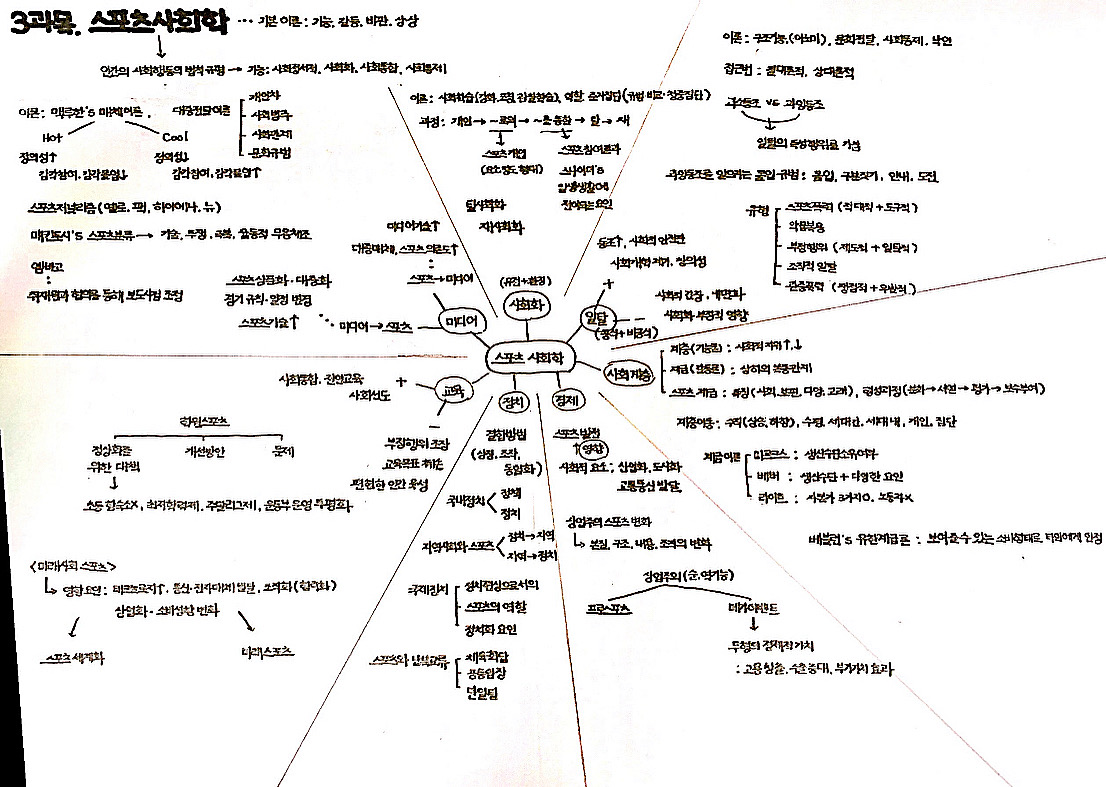 3과목. 스포츠사회학 ··· 기본 이론 : 기능, 갈등, 비판, 상상
인간의 사회행동의 법칙규명 → 기능 : 사회정서적, 사회화, 사회통합, 사회통제
이론 : 맥루한's 매체이론,
Hot
Cool
정의성↑
정의성↓
감각참여, 감각몰입↓
감각참여, 감각몰입↑
대중전달이론
개인차
사회범주
사회관계
문화규범
스포츠저널리즘 (옐로, 팩, 하이에나, 뉴)
매킨토시's 스포츠분류 → 기술, 투쟁, 극복, 율동적 무용체조
엠바고
취재원과 협의를 통해 보도시점 조절
이론 : 사회학습 (강화, 코칭, 관찰학습), 역할, 준거집단 (규범·비교·청중집단)
스포츠개입
스포츠참여결과
스나이더's
일생생활에
전이되는 요인
탈사회화
재사회화
(유전+환경)
사회화
미디어기술↑
대중매체, 스포츠 의존도↑
스포츠→미디어
스포츠상품화·대중화
경기 규칙·일정 변경
스포츠기술↑
미디어→스포츠
미디어
이론 : 구조기능, (아노미), 문화전달, 사회통제, 낙인
접근법 : 절대론적, 상대론적
과소동조 vs 과잉동조
일탈의 측정행위로 가정
과잉동조로 일으키는 몰입규범 : 몰입, 구분짓기, 인내, 도전
유형
스포츠폭력 (적대적+도구적)
약물복용
부정행위 (제도적+일탈적)
조직적 일탈
관중폭력 (쟁점적+우발적)
동조↑, 사회적 안전판
사회개혁 제기, 창의성
+
−
일탈
(긍정+비긍정)
사회적 긴장, 계면화
사회화·부정적 영향
스포츠 사회학
사회계층
계층(기능론) : 사회적 지위↑,↓
계급(갈등론) : 상하의 불평등관계
스포츠 계급 : 특징 (사회, 보편, 다양, 고래), 형성과정 (분화→서열→평가→보수부여)
계층이동 : 수직(상승, 하향), 수평, 세대간, 세대내, 개인, 집단
계급이론
마르크스 : 생산수단소유여부
베버 : 생산수단+다양한 요인
라이트 : 자본가 3가지O, 노동자X
베블런's 유한계급론 : 보여줄수 있는 소비형태로 타인에게 인정
교육
+
사회통합, 전인교육
사회선도
−
부정행위 조장
교육목표 훼손
편협한 인간 육성
학원스포츠
정상화를
위한 대책
개선방안
문제
초등 합숙소X, 최저학력제, 주말리그제, 운동부 운영 투명화
<미래사회 스포츠>
영향요인 : 테크놀로지↑, 통신·전자매체발달, 조직화(합리화)
상업화·소비성향 변화
스포츠 세계화
미래스포츠
정치
결합방법
(상징, 조작,
동일화)
국내정치
정책
정치
지역사회와 스포츠
정책→지역
지역→정치
국제정치
정치현상으로서의
스포츠의 역할
정치화 요인
스포츠와 남북교류
체육회담
공동입장
단일팀
경제
스포츠 발전
↑영향
사회적 요소 : 산업화, 도시화
교통통신 발달
상업주의 스포츠 변화
본질, 구조, 내용, 조직의 변화
상업주의 (순, 역기능)
프로스포츠
메가이벤트
무형의 경제적가치
: 고용창출, 수출증대, 부가가치 효과